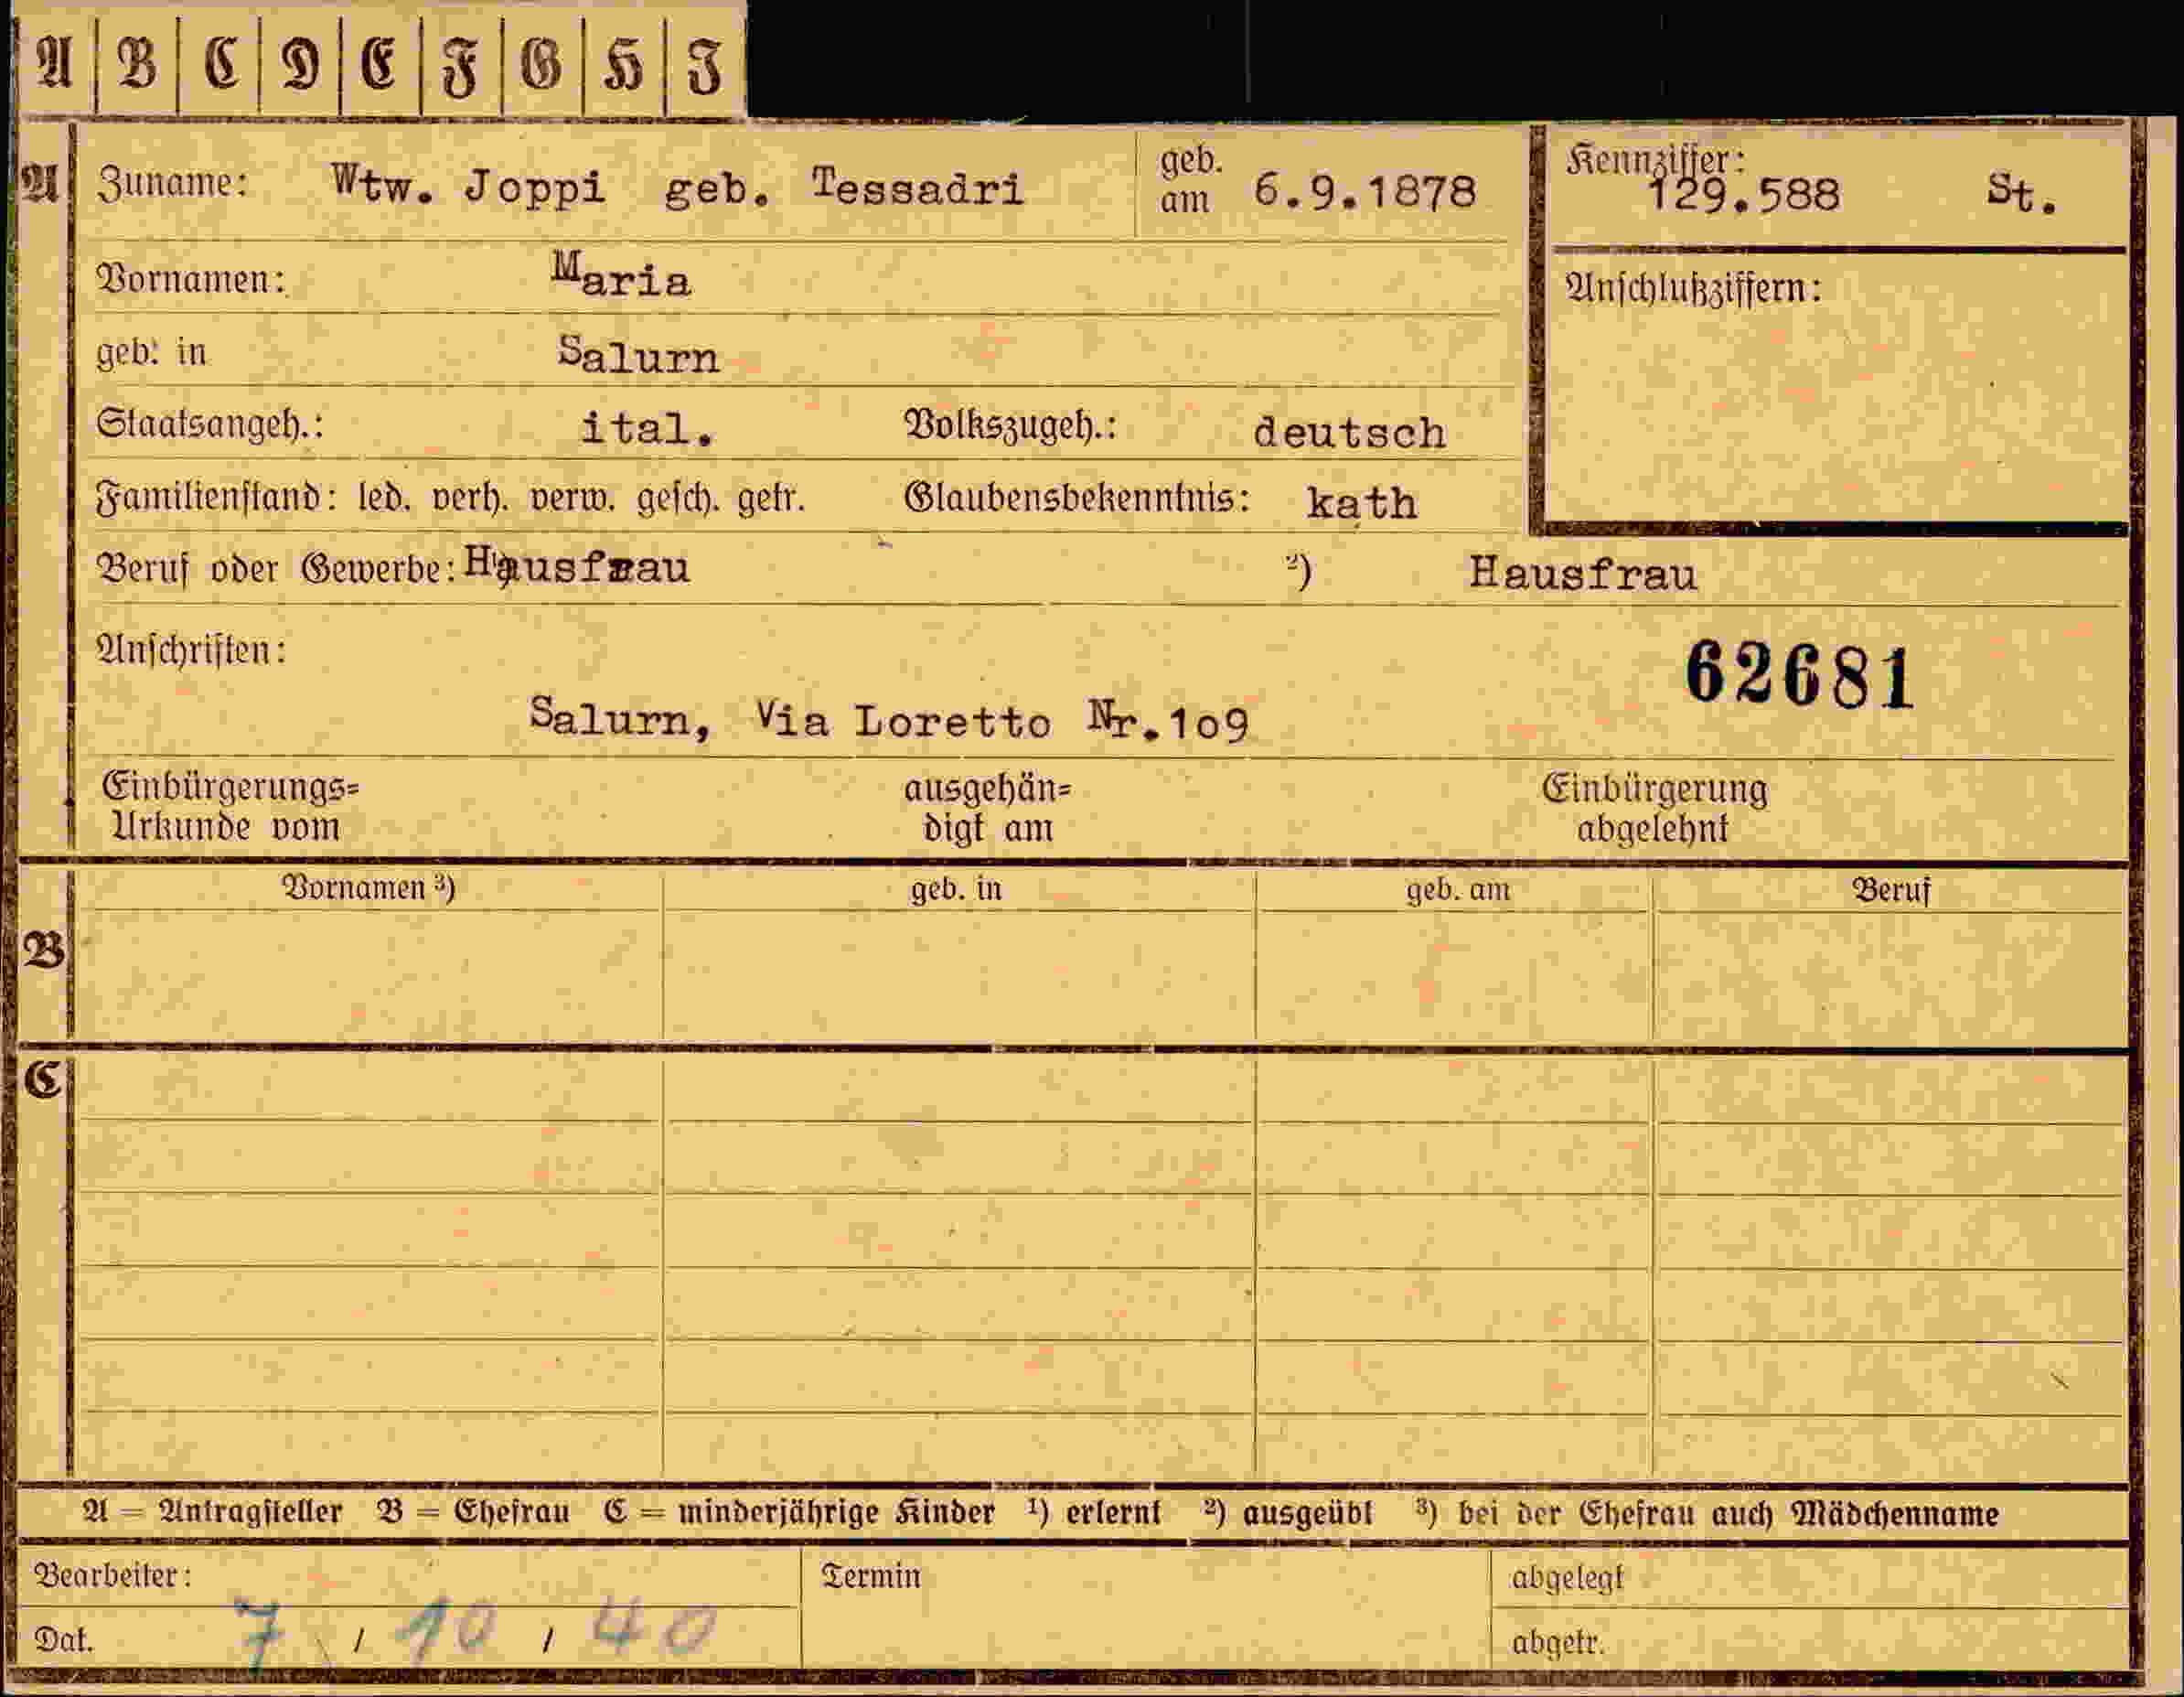 A B C D E F G H I
A Zuname: Wtw. Joppi geb. Tessadri geb. am 6.9.1878 Kennziffer: 129.588 St.
Vornamen: Maria Anschlußziffern:
geb. in Salurn
Staatsangeh.: ital. Volkszugeh.: deutsch
Familienstand: led. verh. verw. gesch. getr. Glaubensbekenntnis: kath
Beruf oder Gewerbe: ¹) Hausfrau ²) Hausfrau
Anschriften: 62681
Salurn, Via Loretto Nr.1o9
Einbürgerungs= ausgehän= Einbürgerung
Urkunde vom digt am abgelehnt
Vornamen ³) geb. in geb. am Beruf
B
C
A = Antragsteller B = Ehefrau C = minderjährige Kinder ¹) erlernt ²) ausgeübt ³) bei der Ehefrau auch Mädchenname
Bearbeiter: Termin abgelegt
Dat. 7 / 10 / 40 abgetr.